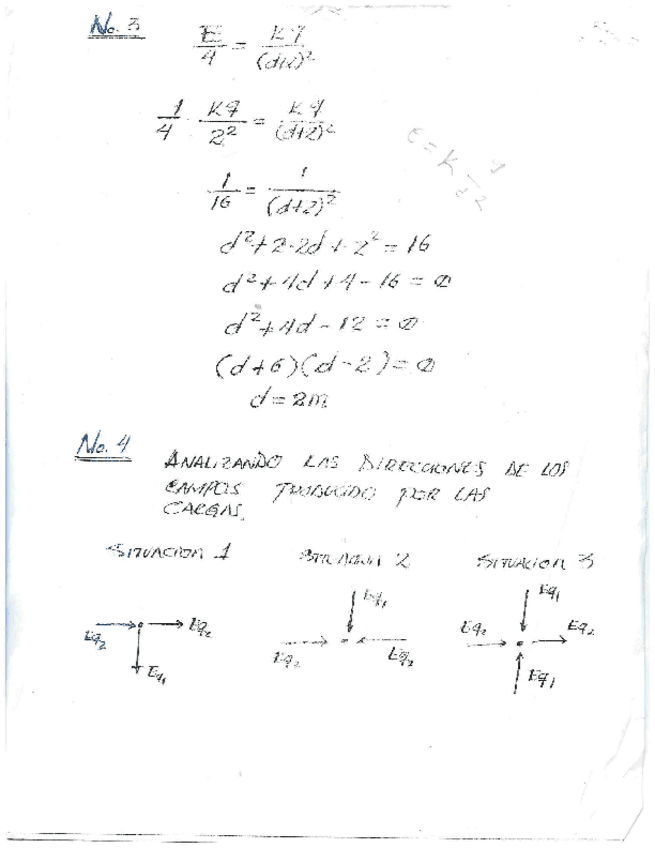 No. 3
E/4 = Kq/(d+2)²
1/4 · Kq/2² = Kq/(d+2)²
E = K q/d²
1/16 = 1/(d+2)²
d² + 2·2d + 2² = 16
d² + 4d + 4 - 16 = 0
d² + 4d - 12 = 0
(d+6)(d-2) = 0
d = 2m
No. 4
ANALIZANDO LAS DIRECCIONES DE LOS
CAMPOS PRODUCIDO POR LAS
CARGAS.
SITUACION 1 SITUACION 2 SITUACION 3
Eq₂ Eq₂ Eq₁
Eq₁ Eq₂ Eq₂
Eq₁ Eq₂ Eq₂ Eq₁